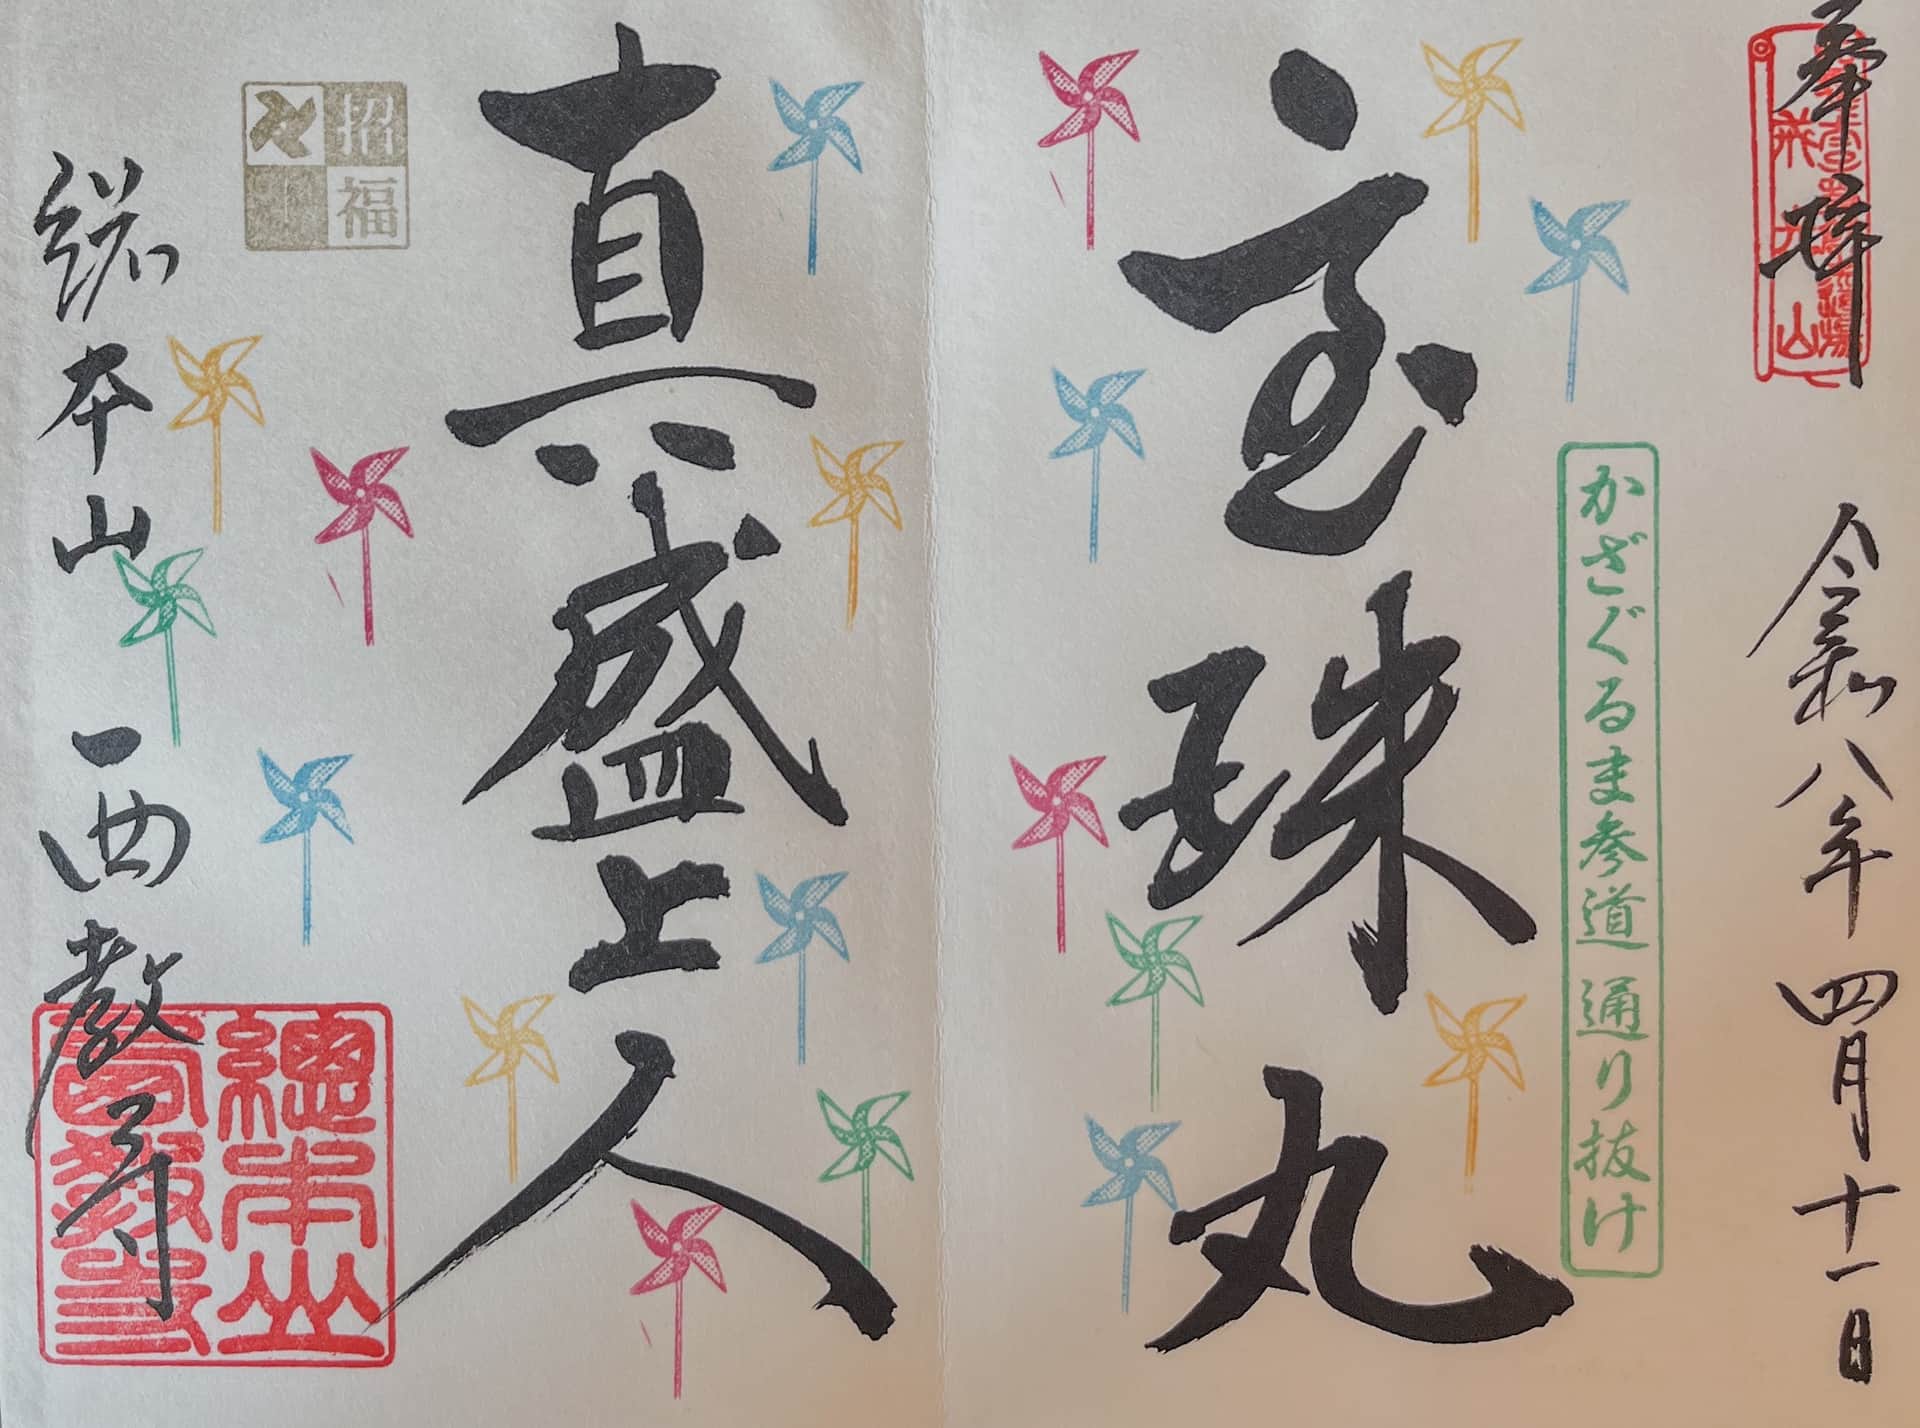 奉拝
戒光山
令和八年四月十一日
かざぐるま参道 通り抜け
宝珠丸
真盛上人
招福
総本山 西教寺
總本山
西教寺